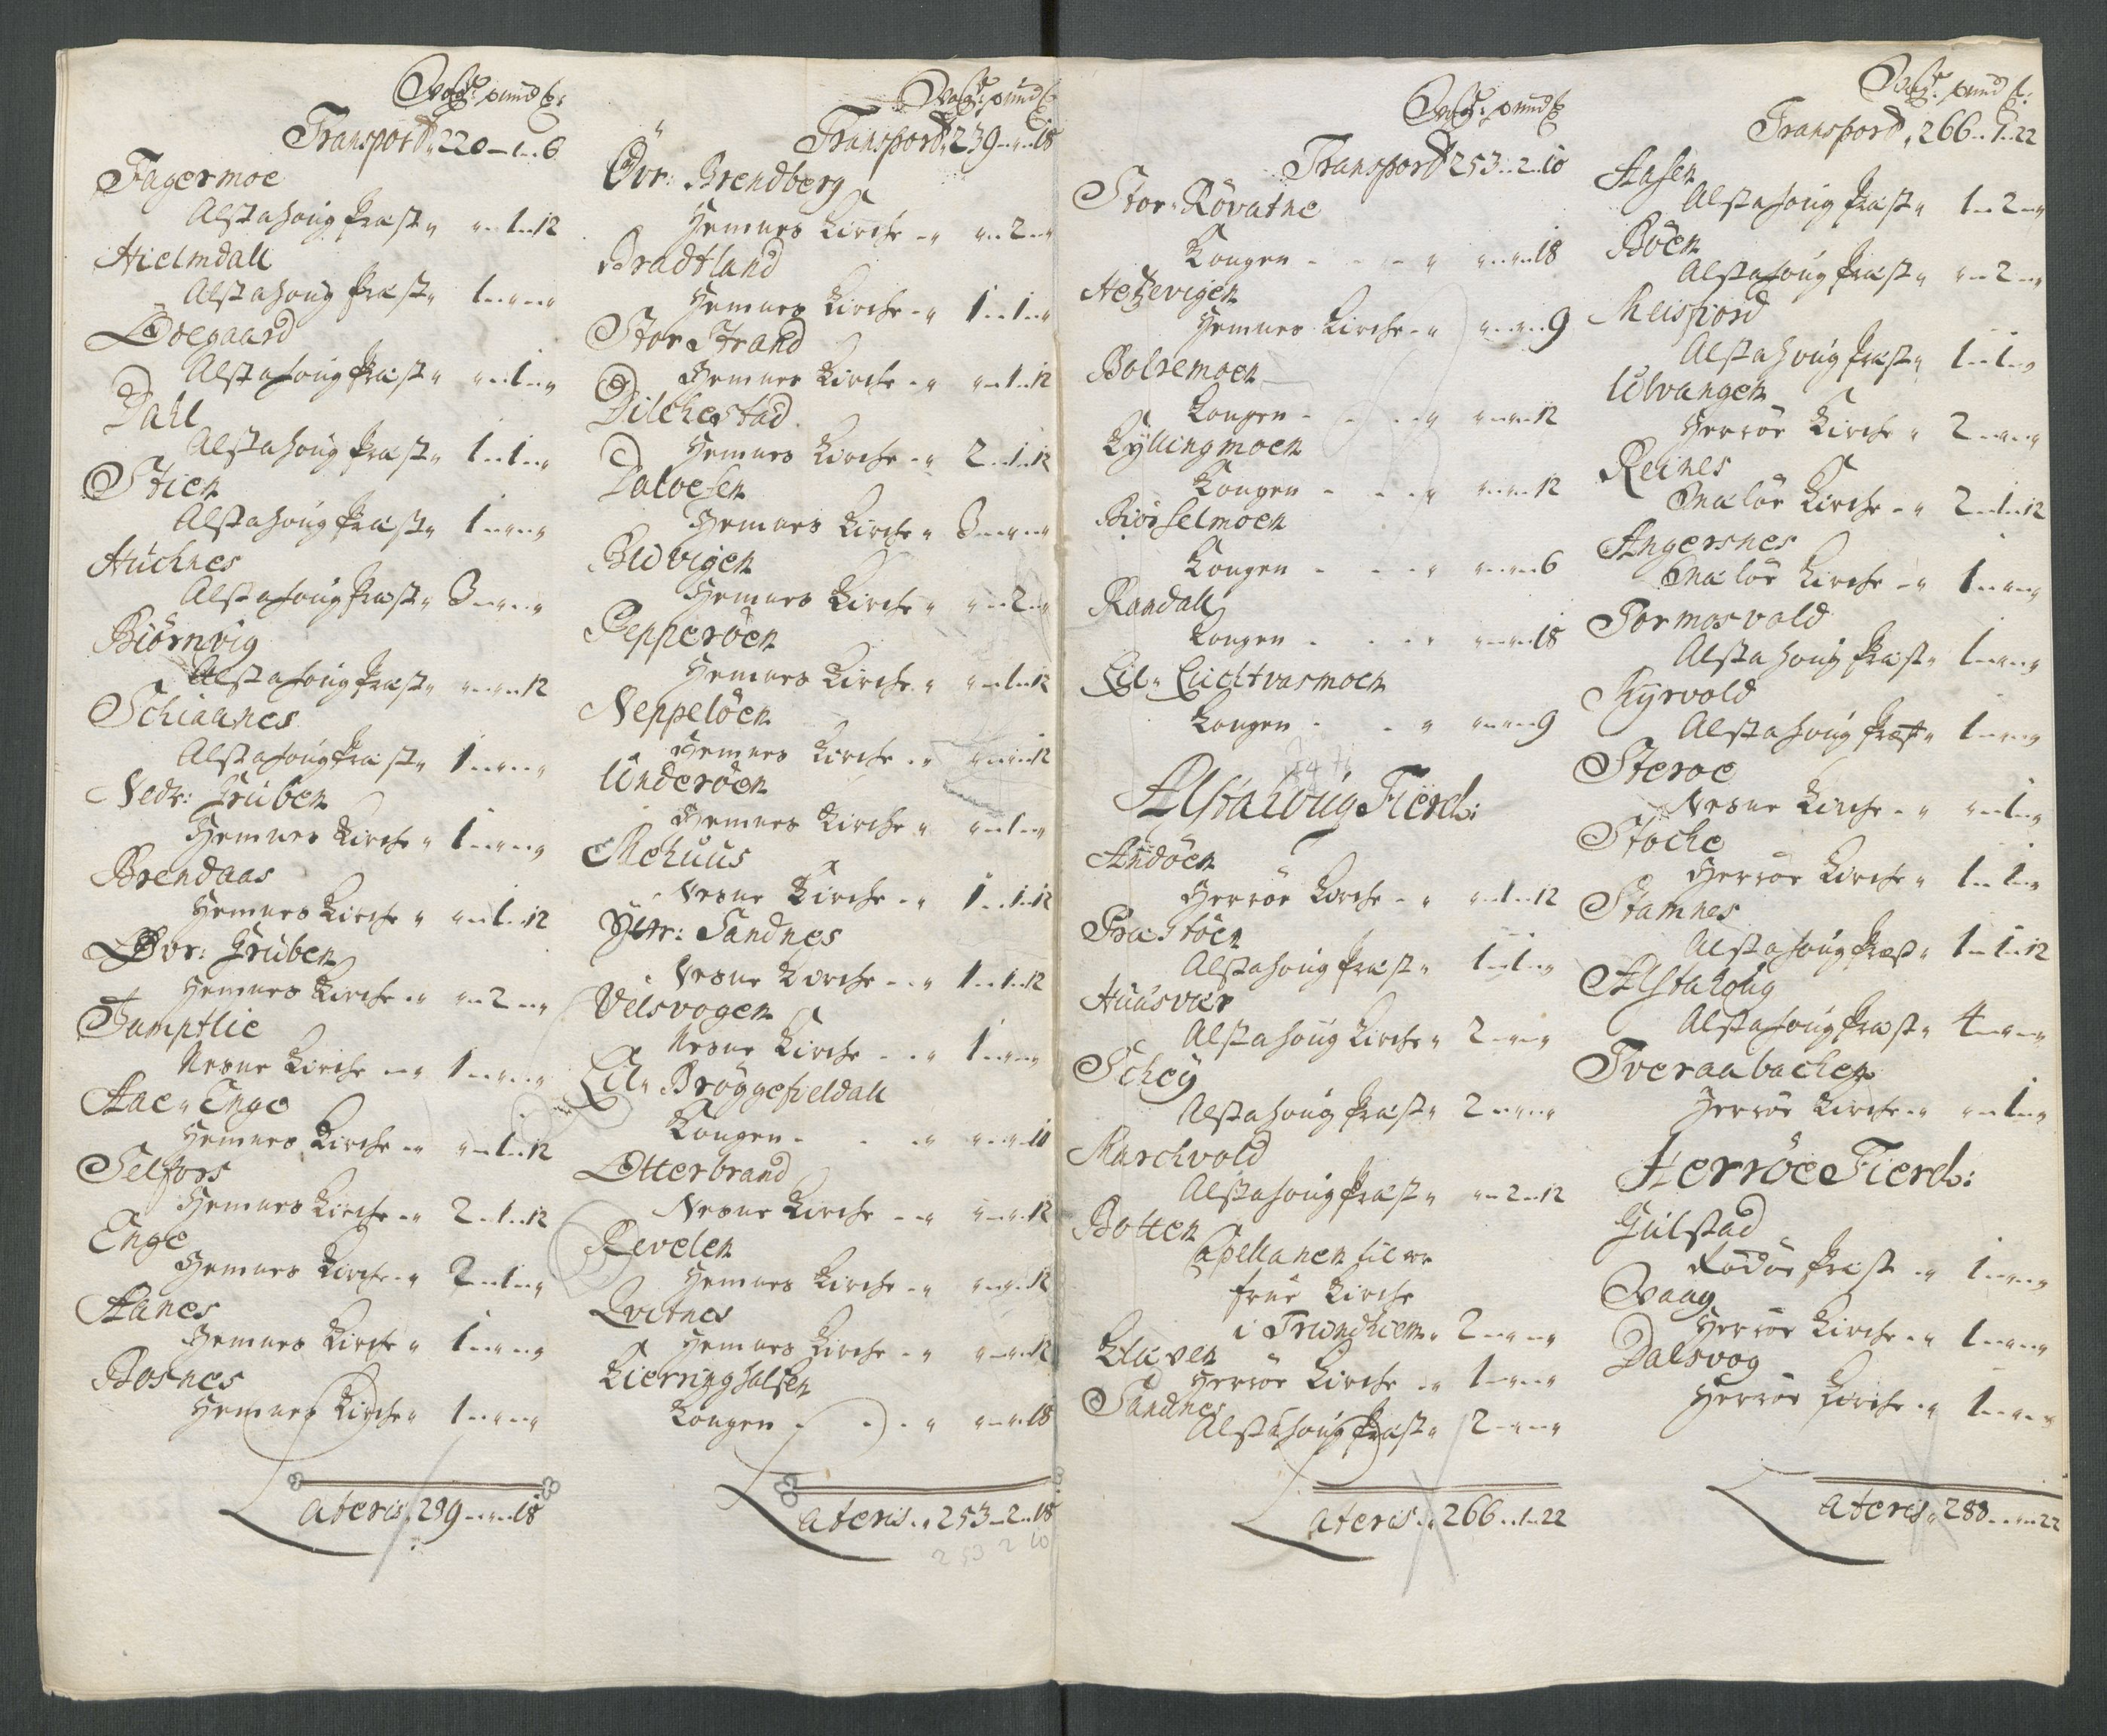 Wog: pund ℔:
Transport „ 220 – 1 – 6
Fagermoe
Alstahoug Præst „ „ – 1 – 12
Hielmdall
Alstahoug Præst „ 1 – „ – „
Ödegaard
Alstahoug Præst „ „ – 1 – „
Dahl
Alstahoug Præst „ 1 – 1 – „
Stien
Alstahoug Præst „ 1 – „ – „
Huchnes
Alstahoug Præst „ 3 – „ – „
Biörnvig
Alstahoug Præst „ „ – „ – 12
Schiaanes
Alstahoug Præst „ 1 – „ – „
Nedr: Gruben
Hemnes Kirche „ 1 – „ – „
Brendaas
Hemnes Kirche „ „ – 1 – 12
Övr: Gruben
Hemnes Kirche – „ „ – 2 – „
Jamptlie
Nesne Kirche – „ 1 – „ – „
Aae „ Enge
Hemnes Kirche – „ „ – 1 – 12
Selfors
Hemnes Kirche – „ 2 – 1 – 12
Enge
Hemnes Kirche – „ 2 – 1 – „
Aanes
Hemnes Kirche „ 1 – „ – „
Bosnes
Hemnes Kirche „ 1 – „ – „
Lateris „ 239 – „ – 18
Wog: pund ℔
Transport „ 239 – „ – 18
Övr: Brendberg
Hemnes Kirche – „ „ – 2 – „
Bradtland
Hemnes Kirche – „ 1 – 1 – „
Stor Strand
Hemnes Kirche – „ „ – 1 – 12
Dilchestad
Hemnes Kirche – „ 2 – 1 – 12
Dalosen
Hemnes Kirche „ 3 – „ – „
Hemnes Kirche „ „ – 2 – „
Pepperöen
Hemnes Kirche „ „ – 1 – 12
Neppelöen
Hemnes Kirche – „ „ – „ – 12
Underöen
Hemnes Kirche „ „ – 1 – „
Mehuus
Nesne Kirche – „ 1 – 1 – 12
Yttr: Sandnes
Nesne Kirche – „ 1 – 1 – 12
Velsvogen
Nesne Kirche – „ 1 – „ – „
Lil „ Bröggefieldall
Kongen – – „ „ – „ – 10
Otterbrand
Nesne Kirche – „ „ – „ – 12
Revelen
Hemnes Kirche – „ „ – „ – 12
Qvitnes
Hemnes Kirche – „ „ – „ – 12
Kierringhalsen
Kongen – – – „ „ – „ – 18
Lateris – „ 253 – 2 – 18
253 2 10
Wog: pund ℔
Transport 253 – 2 – 10
Stor „ Rövatne
Kongen – – – „ „ – „ – 18
Hetzevigen
Hemnes Kirche – „ „ – „ – 9
Bolremoen
Kongen – – – „ „ – „ – 12
Kyllingmoen
Kongen – – – „ „ – „ – 12
Biörselmoen
Kongen – – – „ „ – „ – 6
Randall
Kongen – – – „ „ – „ – 18
Lil „ Luchtvasmoen
Kongen – – „ „ – „ – 9
Alstahoug Fierd:
Andöen
Herröe Kirche – „ „ – 1 – 12
Præstöen
Alstahoug Præst „ 1 – 1 – „
Huusvær
Alstahoug Kirche „ 2 – „ – „
Schey
Alstahoug Præst „ 2 – „ – „
Marchvold
Alstahoug Præst „ „ – 2 – 12
Botten
Capellanen til vor
frue Kirche
i Trundhiem „ 2 – „ – „
Klaven
Herröe Kirche – „ 1 – „ – „
Sandnes
Alstahoug Præst „ 2 – „ – „
Lateris „ 266 – 1 – 22
Wog: pund ℔:
Transport „ 266 – 1 – 22
Aasen
Alstahoug Præst „ 1 – 2 – „
Böen
Alstahoug Præst „ „ – 2 – „
Meisfiord
Alstahoug Præst „ 1 – 1 – „
Ulvangen
Herröe Kirche „ 2 – „ – „
Reines
Dønnæs Kirche – „ 2 – 1 – 12
Angersnes
Kirche – „ 1 – „ – „
Tormosvold
Alstahoug Præst „ 1 – „ – „
Ryrvold
Alstahoug Præst „ 1 – „ – „
Steroe
Nesne Kirche – „ „ – 1 – „
Stoche
Herröe Kirche „ 1 – 1 – „
Stamnes
Alstahoug Præst „ 1 – 1 – 12
Alstahoug
Alstahoug Præst „ 4 – „ – „
Tveraabachen
Herröe Kirche – „ „ – 1 – „
Herröe Fierd:
Gulstad
Rödöe Præst – „ 1 – „ – „
Waag
Herröe Kirche – „ 1 – „ – „
Dalsvog
Herröe Kirche – „ 1 – „ – „
Lateris „ 288 – „ – 22